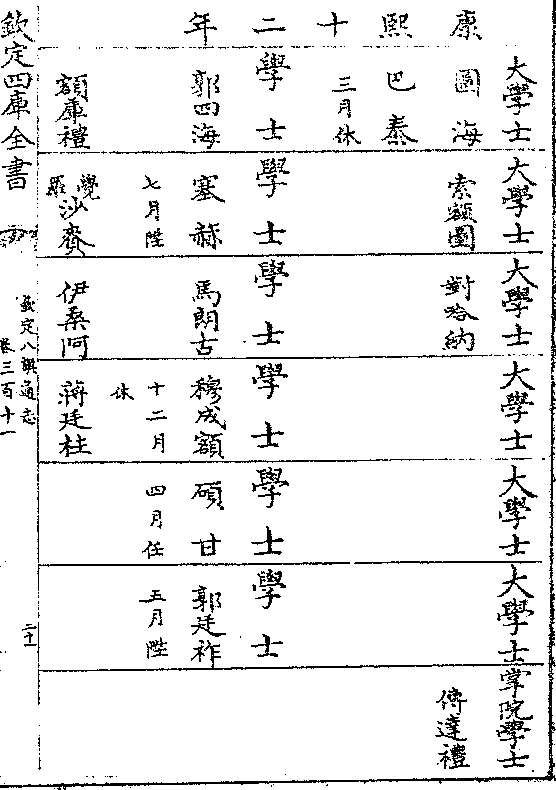 康熙十二年
大學士
圖海
巴泰
三月休
學士
郭四海
額庫禮
大學士
索額圖
學士
塞赫
七月陞
覺羅沙賚
大學士
對哈納
學士
馬朗古
伊桑阿
大學士
學士
穆成額
十二月休
蔣廷柱
大學士
學士
碩甘
四月任
大學士
學士
郭廷祚
五月陞
掌院學士
傅達禮
欽定四庫全書
欽定八旗通志
卷三百十一